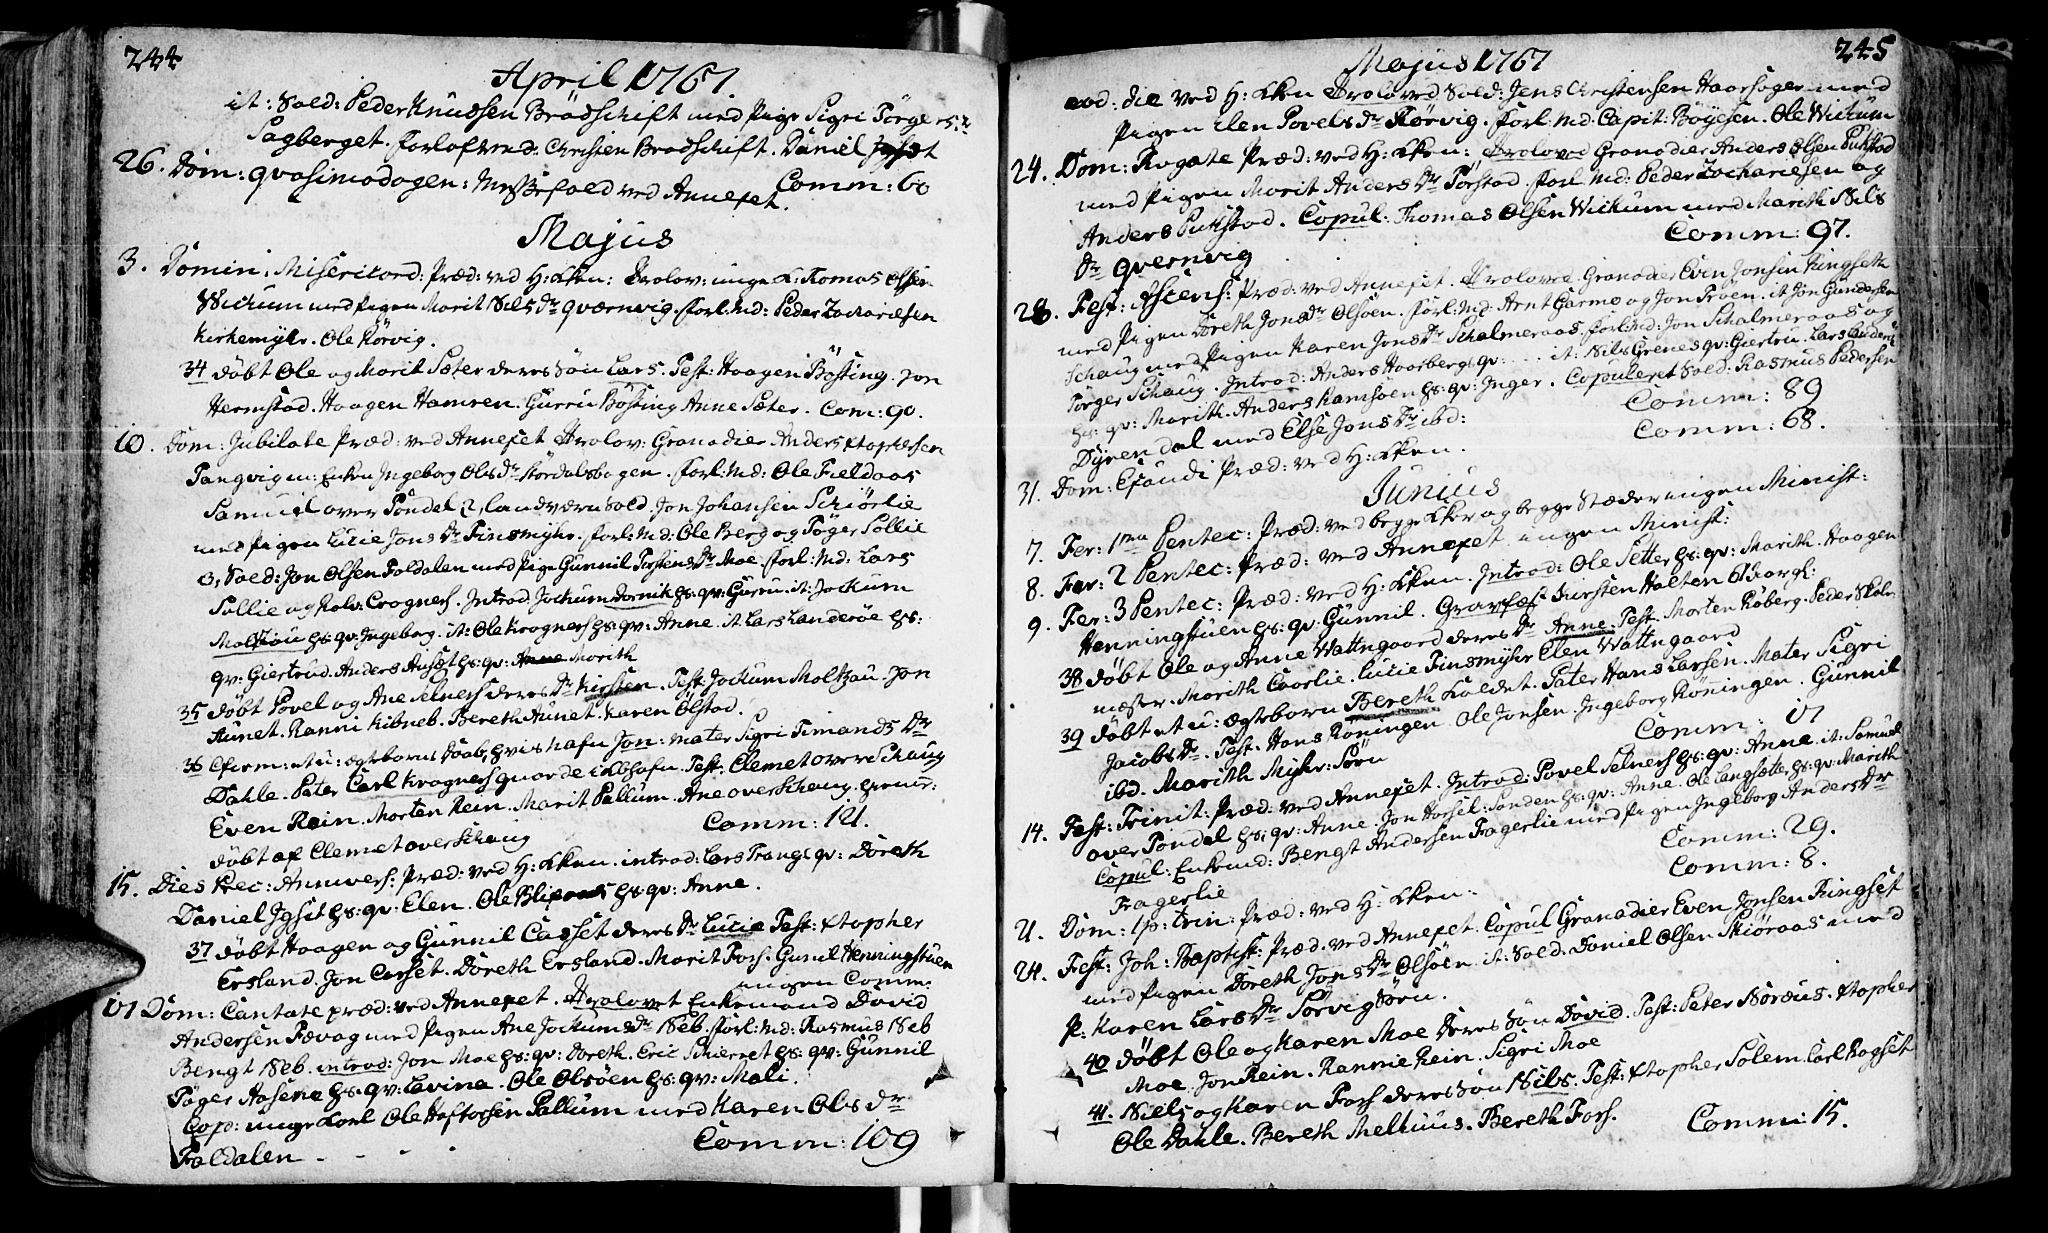 244
April 1767.
it: Sold: Peder Knudsen Brødschift med Pige Sigri Törgers Dr
Sagberget. forlofvmd: Christen Brødschift. Daniel
Comm: 60
26. Dom: qvasimodogen: Messefald ved Annexet.
Majus
3. Domin: Misericord: Præd: ved H: Kken: Trolov: unge K: Thomas Olsen
Wickum med Pigen Marit Nils Dr Qværnvig. forl: Md: Peder Zachariesen
Kirkemyhr. Ole Körvig.
34 döbt Ole og Morit Sæter deres Sön Lars. Test: Haagen Bösting. Jon
Hermstad. Haagen Hamren. Gurru Bösting Anne Sæter. Com: 90.
10. Dom: Jubilate Præd: ved Annexet Trolov: Granadier Anders Xtophersen
Tangvig m: Enken Ingeborg Ols Dr Stördalsbogen. forl: Md: Ole Fieldaas
Samuel over Pöndel 2, landværn Sold. Jon Johansen Schiörlie
med Pigen Lucie Jons Dr Finsmyhr. forl: Md: Ole Berg og Töger Sollie
3, Sold: Jon Olsen Foldalen med Pige Gunnil Torstens Dr Moe. forl: Md: Lars
Sollie og Rolv: Crognes. Introd: Jockum Dornik hs: qv: Gurru. it: Jockum
Moltzau hs: qv: Ingeborg. it: Ole Krognes hs: qv: Anne. it Lars Landeröe hs:
qv: Giertrud. Anders Husæt hs: qv: Anne Morith
35 döbt Povel og Ane Selnes deres Dr Kirsten. Test: Jockum Moltzau. Jon
Aunet. Ranni Kibneb. Bereth Aunet. Karen Ölstad.
36 Cferm: et u: ægteborns Daab, hvis Nafn Jon: Mater Sigri Simonds Dr
Dahle. Pater Carl Krognes giorde i Kbhafn. Test: Clemet overe Schaug
Even Rein. Morten Rein. Marit Pallum. Ane over Schaug.
döbt af Clemet over Schaug
Comm: 121.
15. Dies Prec: Annivers: Præd: ved H: Kken. introd: Lars Trangs qv: Doreth
Daniel Igset hs: qv: Elen. Ole hs: qv: Anne.
37 döbt Haagen og Gunnil Casset deres Dr Lucie Test: Xtopher
Ersland. Jon Casset. Doreth Ersland. Marit Fors. Gunil Henningstuen
ingen Comm.
17 Dom: Cantate præd: ved Annexet. Trolovet Enkemand David
Andersen Fævag med Pigen Ane Jockums Dr Neb. forl: Md: Rasmus Neb
Bengt Neb. introd: Jon Moe hs: qv: Doreth. Eric Schierret hs: qv: Gunnil
Töger Aasene hs: qv: Lavina. Ole Olsöen hs: qv: Mali.
Cop: unge Karl Ole Haftorsen Pallum med Karen Ols Dr
Foldalen
Comm: 109
245
Majus 1767
eod: die ved H: Kken Troloved Sold: Jens Christensen Haarsager med
Pigen Elen Povels Dr Körvig. forl: Md: Capit: Böyesen. Ole Wickum
24. Dom: Rogate Præd: ved H: Kken: Trolovet Granadier Anders Olsen Pukstad
med Pigen Morit Anders Dr Forstad. forl Md: Peder Zachariesen og
Anders Pukstad. Copul: Thomas Olsen Wickum med Marith Nils
Dr Qvernvig
Comm: 97.
28. Fest: Ascens: Præd: ved Annexet. Trolovet Granadier Even Jonsen Ringseth
med Pigen Doreth Jons Dr Olsöen. forl: Md: Arnt Garmo og Jon Tröen. it Jon Gundersen
Schaug med Pigen Karen Jons Dr Schalmeraas. forl: Md: Jon Schalmeraas og
Torger Schaug. Introd: Anders Haarbergs qv: it: Nils Grenes qv: Giertru. Lars Anders
hs: qv: Marith. Anders Kamsöen hs: qv: Inger. Copuleret Sold: Rasmus Pedersen
Dyrendal med Else Jons Dr ibd:
Comm: 89
31. Dom: Exaudi Præd: ved H: Kken.
Comm: 68.
Junius
7. Fer: 1ma Pentec: Præd: ved begge Kker og begge Stæder ingen Minist:
8. Fer: 2 Pentec: Præd: ved Annexet ingen Minist:
9. Fer: 3 Pentec: Præd: ved H: Kken. Introd: Ole Setter hs: qv: Marith. Haagen
Henningstuen hs: qv: Gunnil. Gravfæst Kirsten Halten
38 döbt Ole og Anne Wattngaard deres Dr Anne. Test: Morten Roberg. Peder Skole
mester. Marith Caarlie. Lucie Finsmyhr Elen Wattngaard
39 döbt et u: ægteborn Bereth Kaldet. Pater Hans Larsen. Mater Sigri
Jacobs Dr. Test: Hans Röningen. Ole Jonsen. Ingeborg Röningen. Gunnil
ibd. Marith Myhr: Sörn
Comm: 17
14. Fest: Trinit: Præd: ved Annexet. Introd: Povel Selnes hs: qv: Anne. it: Samuel
over Pöndel hs: qv: Anne. Jon Horsel: Sanden hs: qv: Anne. Ole Langsætter hs: qv: Marith
Copul: Enkemd: Bengt Andersen Fragerlie med Pigen Ingeborg Anders Dr
Fragerlie
Comm: 29.
21. Dom: 1 p: trin: Præd: ved H: Kken.
Comm: 8.
24. Fest: Joh: Baptist: Præd: ved Annexet. Copul Granadier Even Jonsen Ringset
med Pigen Doreth Jons Dr Olsöen. it: Sold. Daniel Olsen Skiöraas med
P: Karen Lars Dr Sörvig Sörn.
40 döbt Ole og Karen Moe deres Sön David. Test: Peter Noræus. Xtopher
Moe. Jon Rein. Rannie Rein. Sigri Moe
41. Niels og Karen Fors deres Sön Nils. Test: Xtopher Solem. Carl Rogset
Ole Dahle. Bereth Melhuus. Bereth Fors.
Comm: 15.